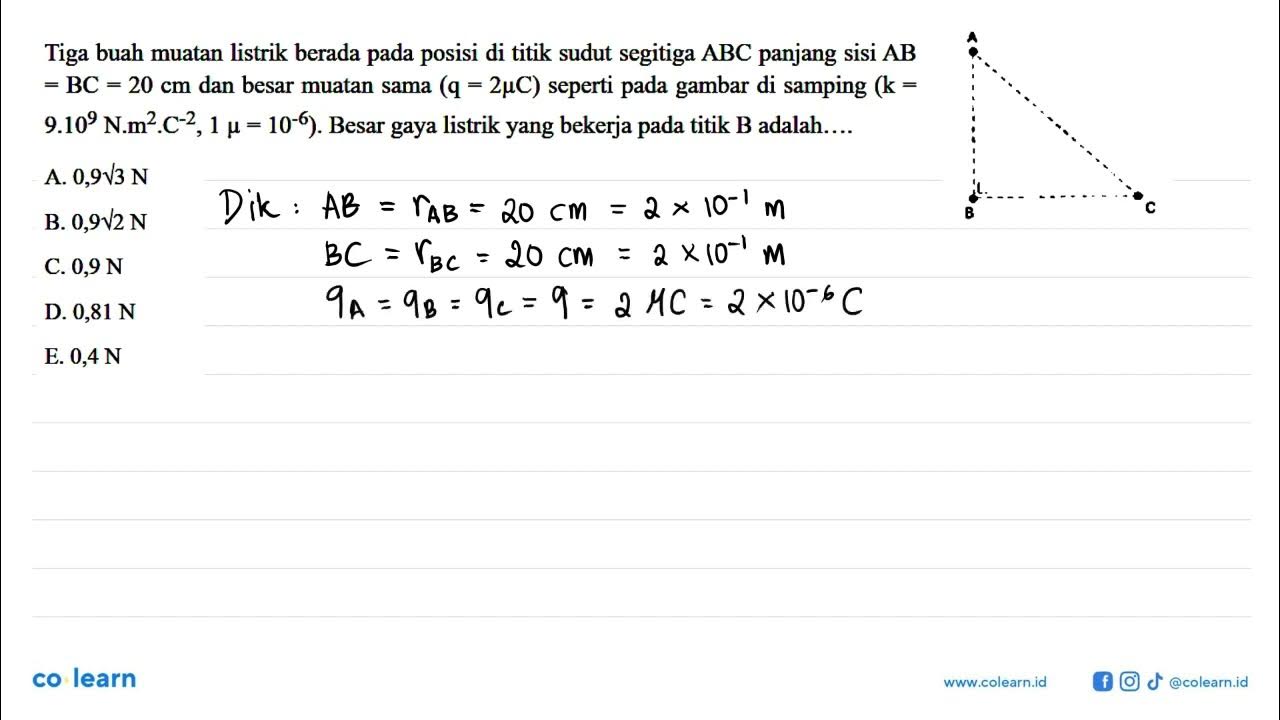 Tiga buah muatan listrik berada pada posisi di titik sudut segitiga ABC panjang sisi AB
= BC = 20 cm dan besar muatan sama (q = 2μC) seperti pada gambar di samping (k =
9.10⁹ N.m².C⁻², 1 μ = 10⁻⁶). Besar gaya listrik yang bekerja pada titik B adalah....
A. 0,9√3 N
B. 0,9√2 N
C. 0,9 N
D. 0,81 N
E. 0,4 N
Dik : AB = r_AB = 20 cm = 2 × 10⁻¹ m
BC = r_BC = 20 cm = 2 × 10⁻¹ m
q_A = q_B = q_C = q = 2 μC = 2 × 10⁻⁶ C
A
B
C
co learn
www.colearn.id
@colearn.id